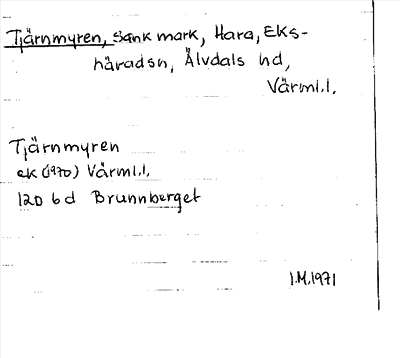 Tjärnmyren, sank mark, Hara, Eks-
häradsn, Älvdals hd,
Värml.l.
Tjärnmyren
ek (1970) Värml.l.
12D 6d Brunnberget
I.M.1971